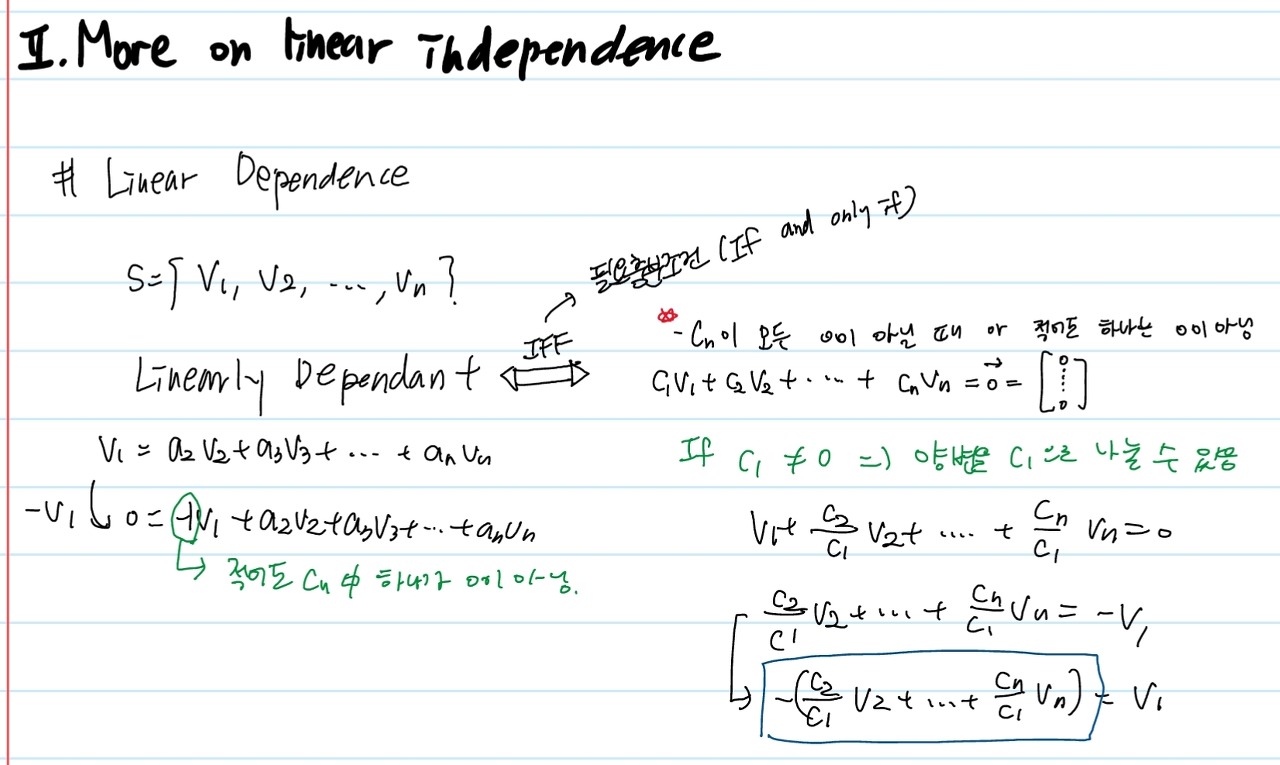 II. More on linear independence
# Linear Dependence
S={ V₁, V₂, ..., Vn }
필요충분조건 (If and only if)
Linearly Dependant
IFF
- Cn이 모든 0이 아닐 때 or 적어도 하나는 0이 아님
C₁V₁ + C₂V₂ + ... + CnVn = 0⃗ = [0 ⋮ 0]
V₁ = a₂V₂ + a₃V₃ + ... + anVn
-V₁ 0 = -1V₁ + a₂V₂ + a₃V₃ + ... + anVn
적어도 Cn 中 하나가 0이 아님.
If C₁ ≠ 0 => 양변을 C₁으로 나눌 수 있음
V₁ + C₂/C₁ V₂ + .... + Cn/C₁ Vn = 0
C₂/C₁ V₂ + ... + Cn/C₁ Vn = -V₁
-(C₂/C₁ V₂ + ... + Cn/C₁ Vn) = V₁